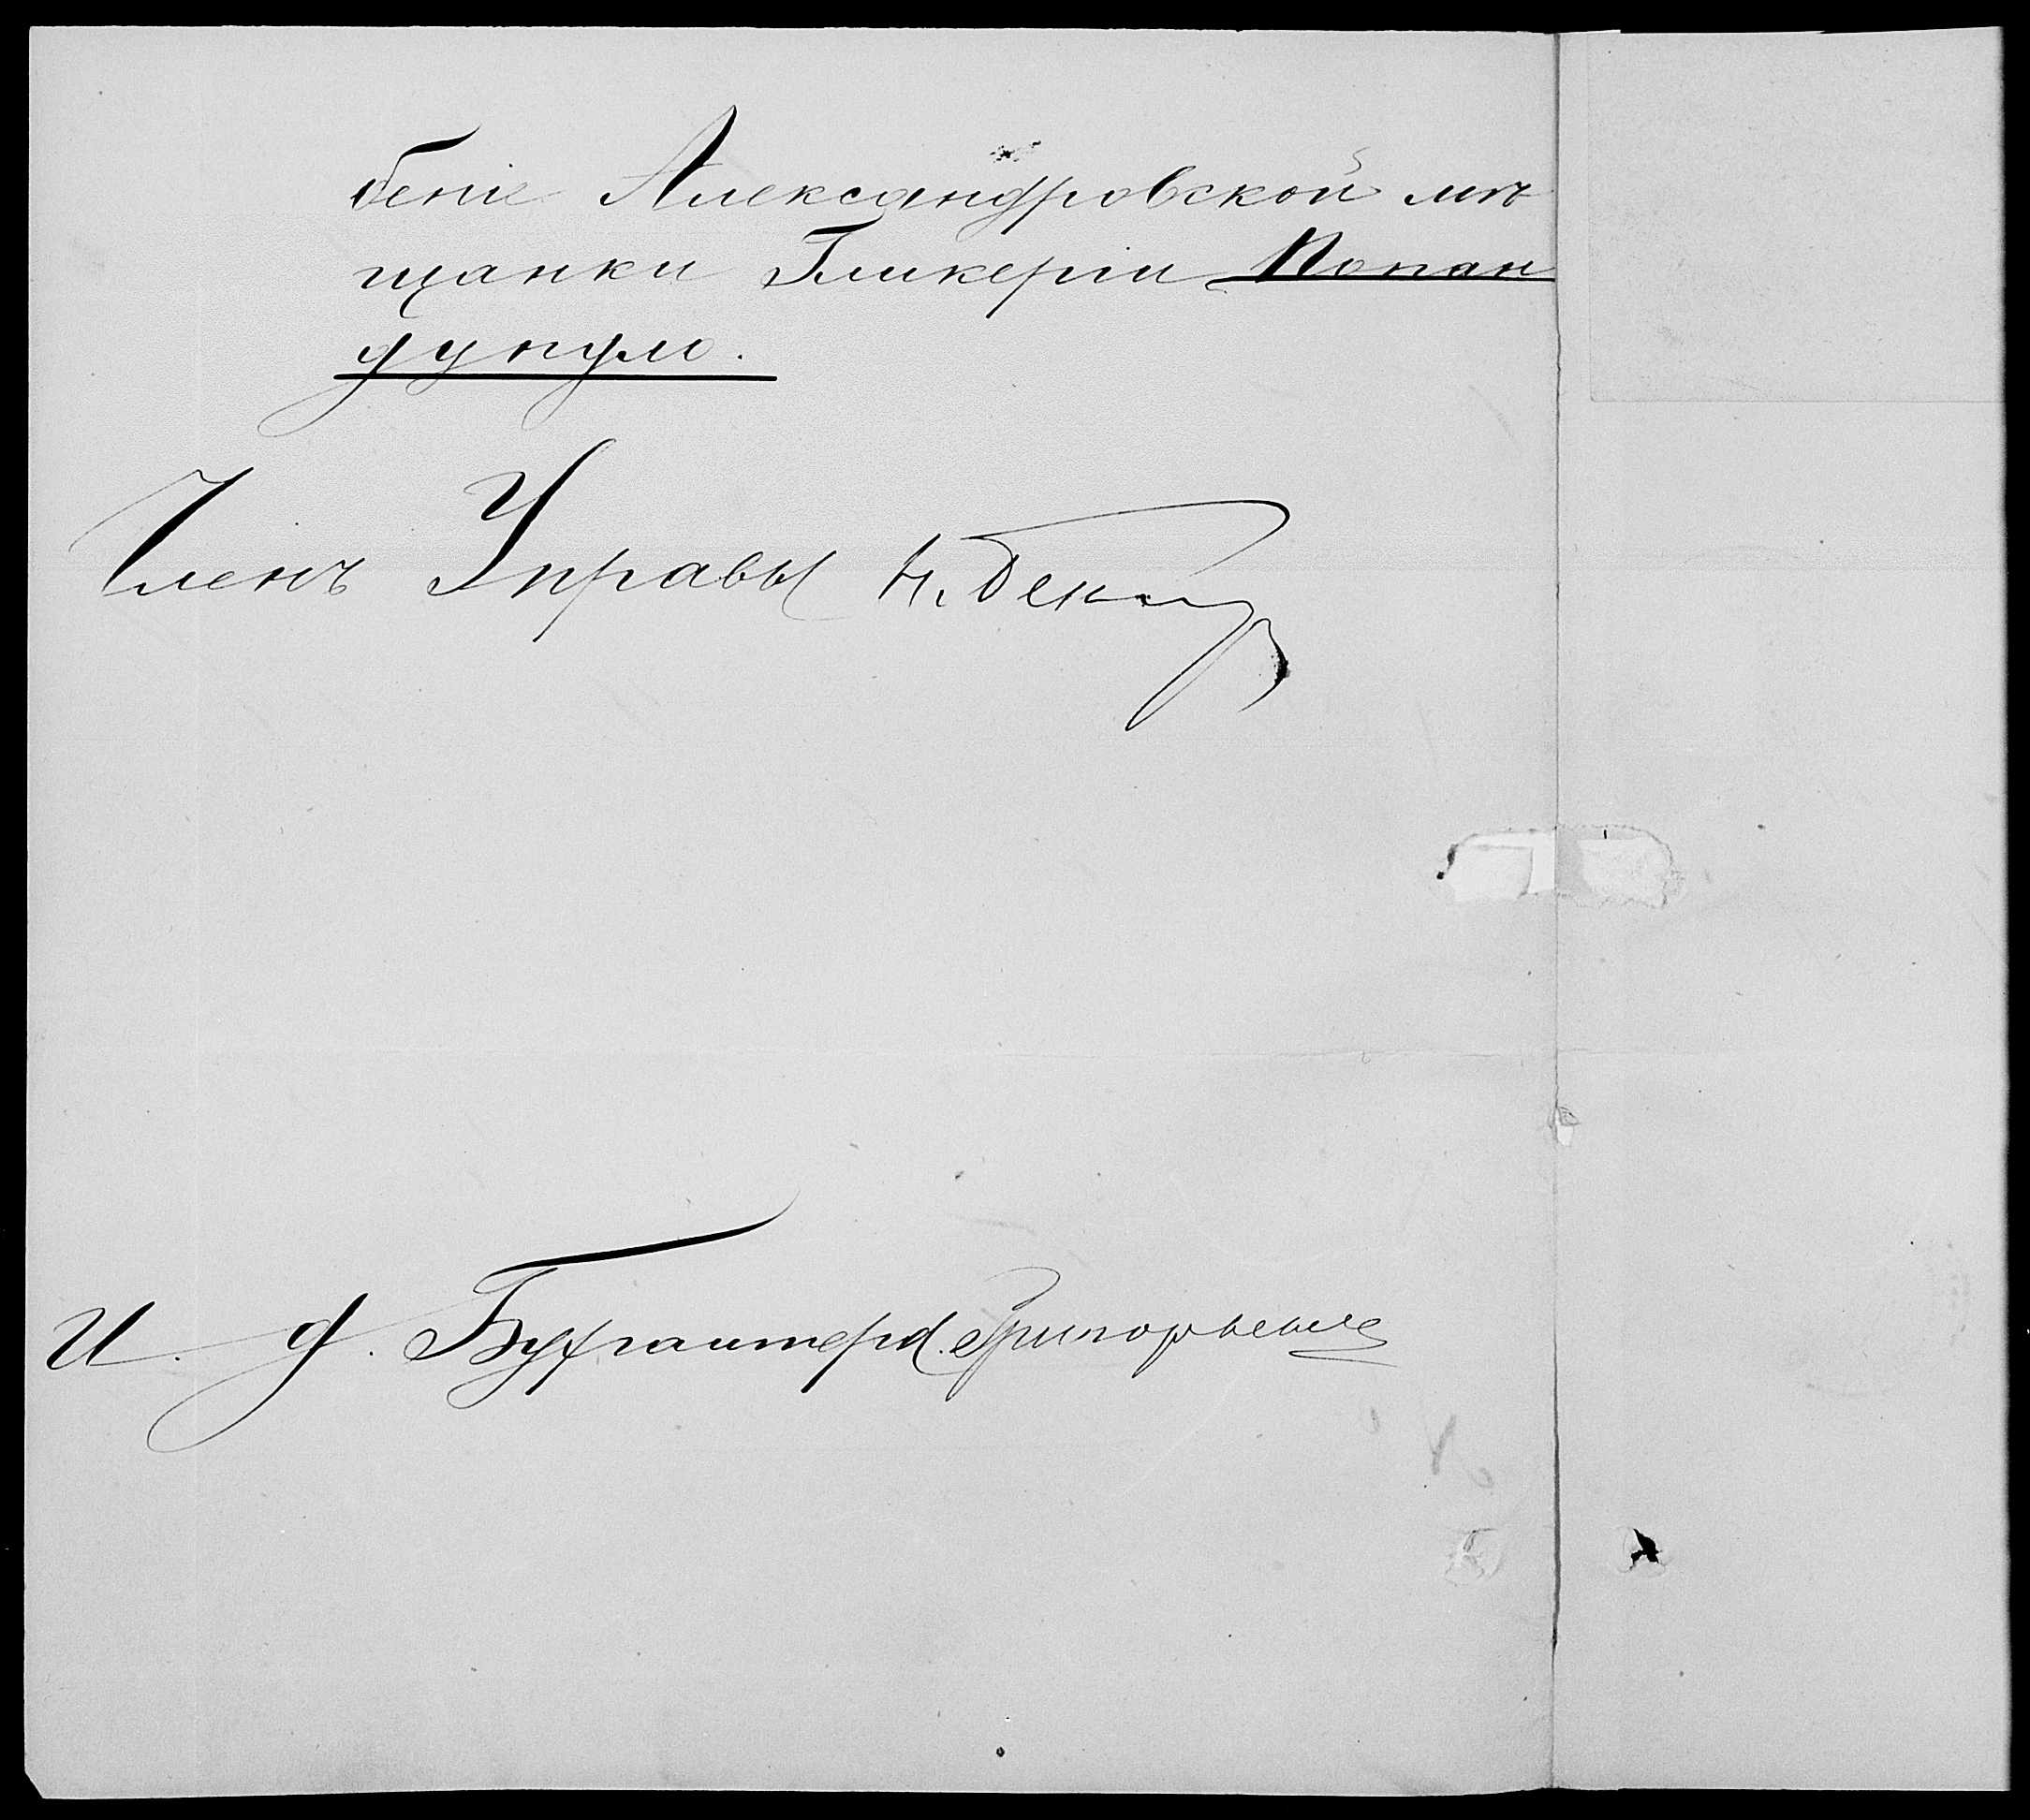 бенie Александровской мѣ
щанки Гликеріи Попан
дупуло.
Членъ Управы Н.
И. д. Бухгалтера Григорьевъ